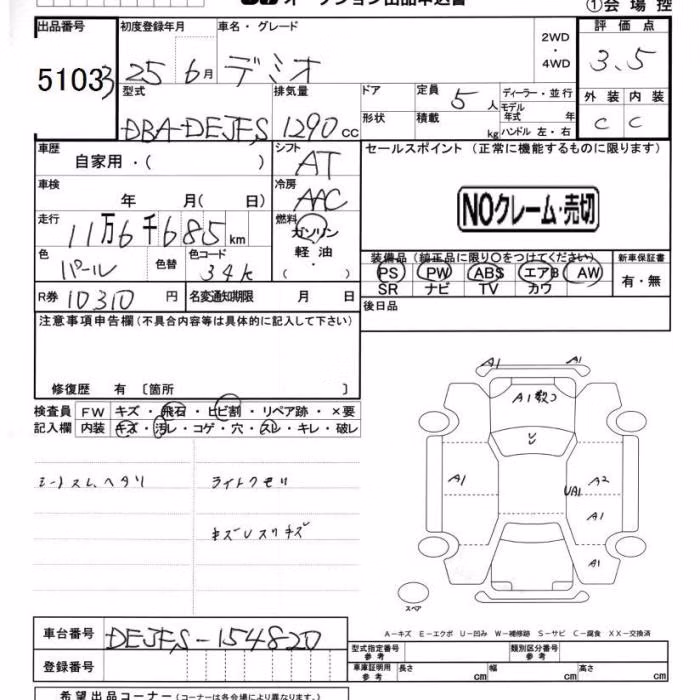 オークション出品申込書
①会場控
出品番号 初度登録年月 車名・グレード 2WD・4WD 評価点
51033 25 6月 デミオ 3.5
型式 排気量 ドア 定員 5人 ディーラー・並行 外装 内装
DBA-DEJFS 1290cc 形状 積載 kg モデル年式 年 ハンドル 左・右 C C
車歴 自家用・( ) シフト AT セールスポイント (正常に機能するものに限ります)
車検 年 月( 日) 冷房 AAC
NOクレーム・売切
走行 11万6千685km 燃料 ガソリン 軽油 ( ・ )
色 パール 色替 色コード 34K
装備品 (純正品に限り○をつけてください) 新車保証書
PS PW ABS エアB AW 有・無
SR ナビ TV カワ
R券 10310円 名変通知期限 月 日
後日品
注意事項申告欄(不具合内容等は具体的に記入して下さい)
修復歴 有 〔箇所 〕
検査員 FW キズ・飛石・ヒビ割・リペア跡・×要
記入欄 内装 キズ・汚レ・コゲ・穴・スレ・キレ・破レ
シートスレ、ヘタリ ライトクモリ
キズUスリキズ
A1 A1
A1数コ
A1 A2
UA1
A1
A1
スペア
A-キズ E-エクボ U-凹み W-補修跡 S-サビ C-腐食 XX-交換済
車台番号 DEJFS-154820
登録番号
型式指定番号 参考 類別区分番号 参考
車庫証明用 参考 長さ cm 幅 cm 高さ cm
希望出品コーナー(コーナーは各会場により異なります。)